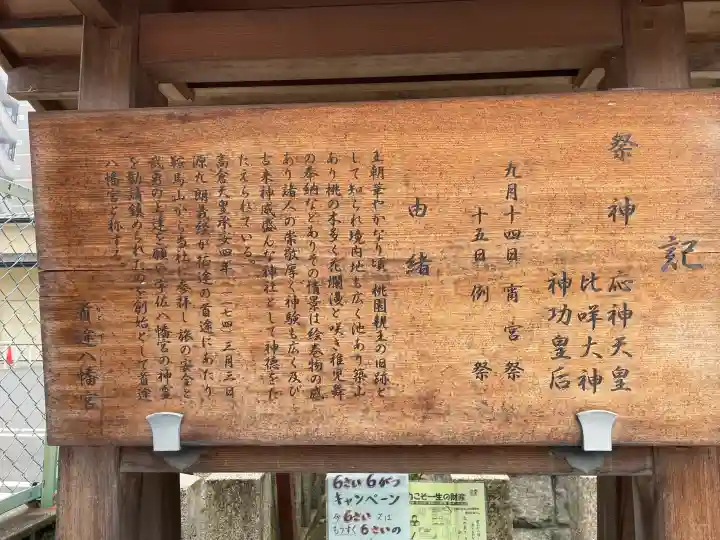 記
祭神 応神天皇
比咩大神
神功皇后
九月十四日 宵宮祭
十五日 例祭
由緒
王朝華やかなり頃、桃園親王の旧跡と
して知られ境内地も広く池あり築山
あり桃の木多く花爛漫と咲き稚児舞
の奉納などありその情景は絵巻物の感
あり諸人の崇敬厚く神験も広く及び
古来神威盛んな神社として神徳をた
たえられている。
高倉天皇承安四年(一一七四)三月三日
源九朗義経が奥州首途の首途にあたり
鞍馬山から当社に参拝し旅の安全と
武勇の上達を願い宇佐八幡宮の神霊
を勧請鎮められたのを創始として首途
八幡宮と称する。
首途八幡宮
6さい6がつ
キャンペーン
今6さい又は
もうすぐ6さいの
こそ一生の財産